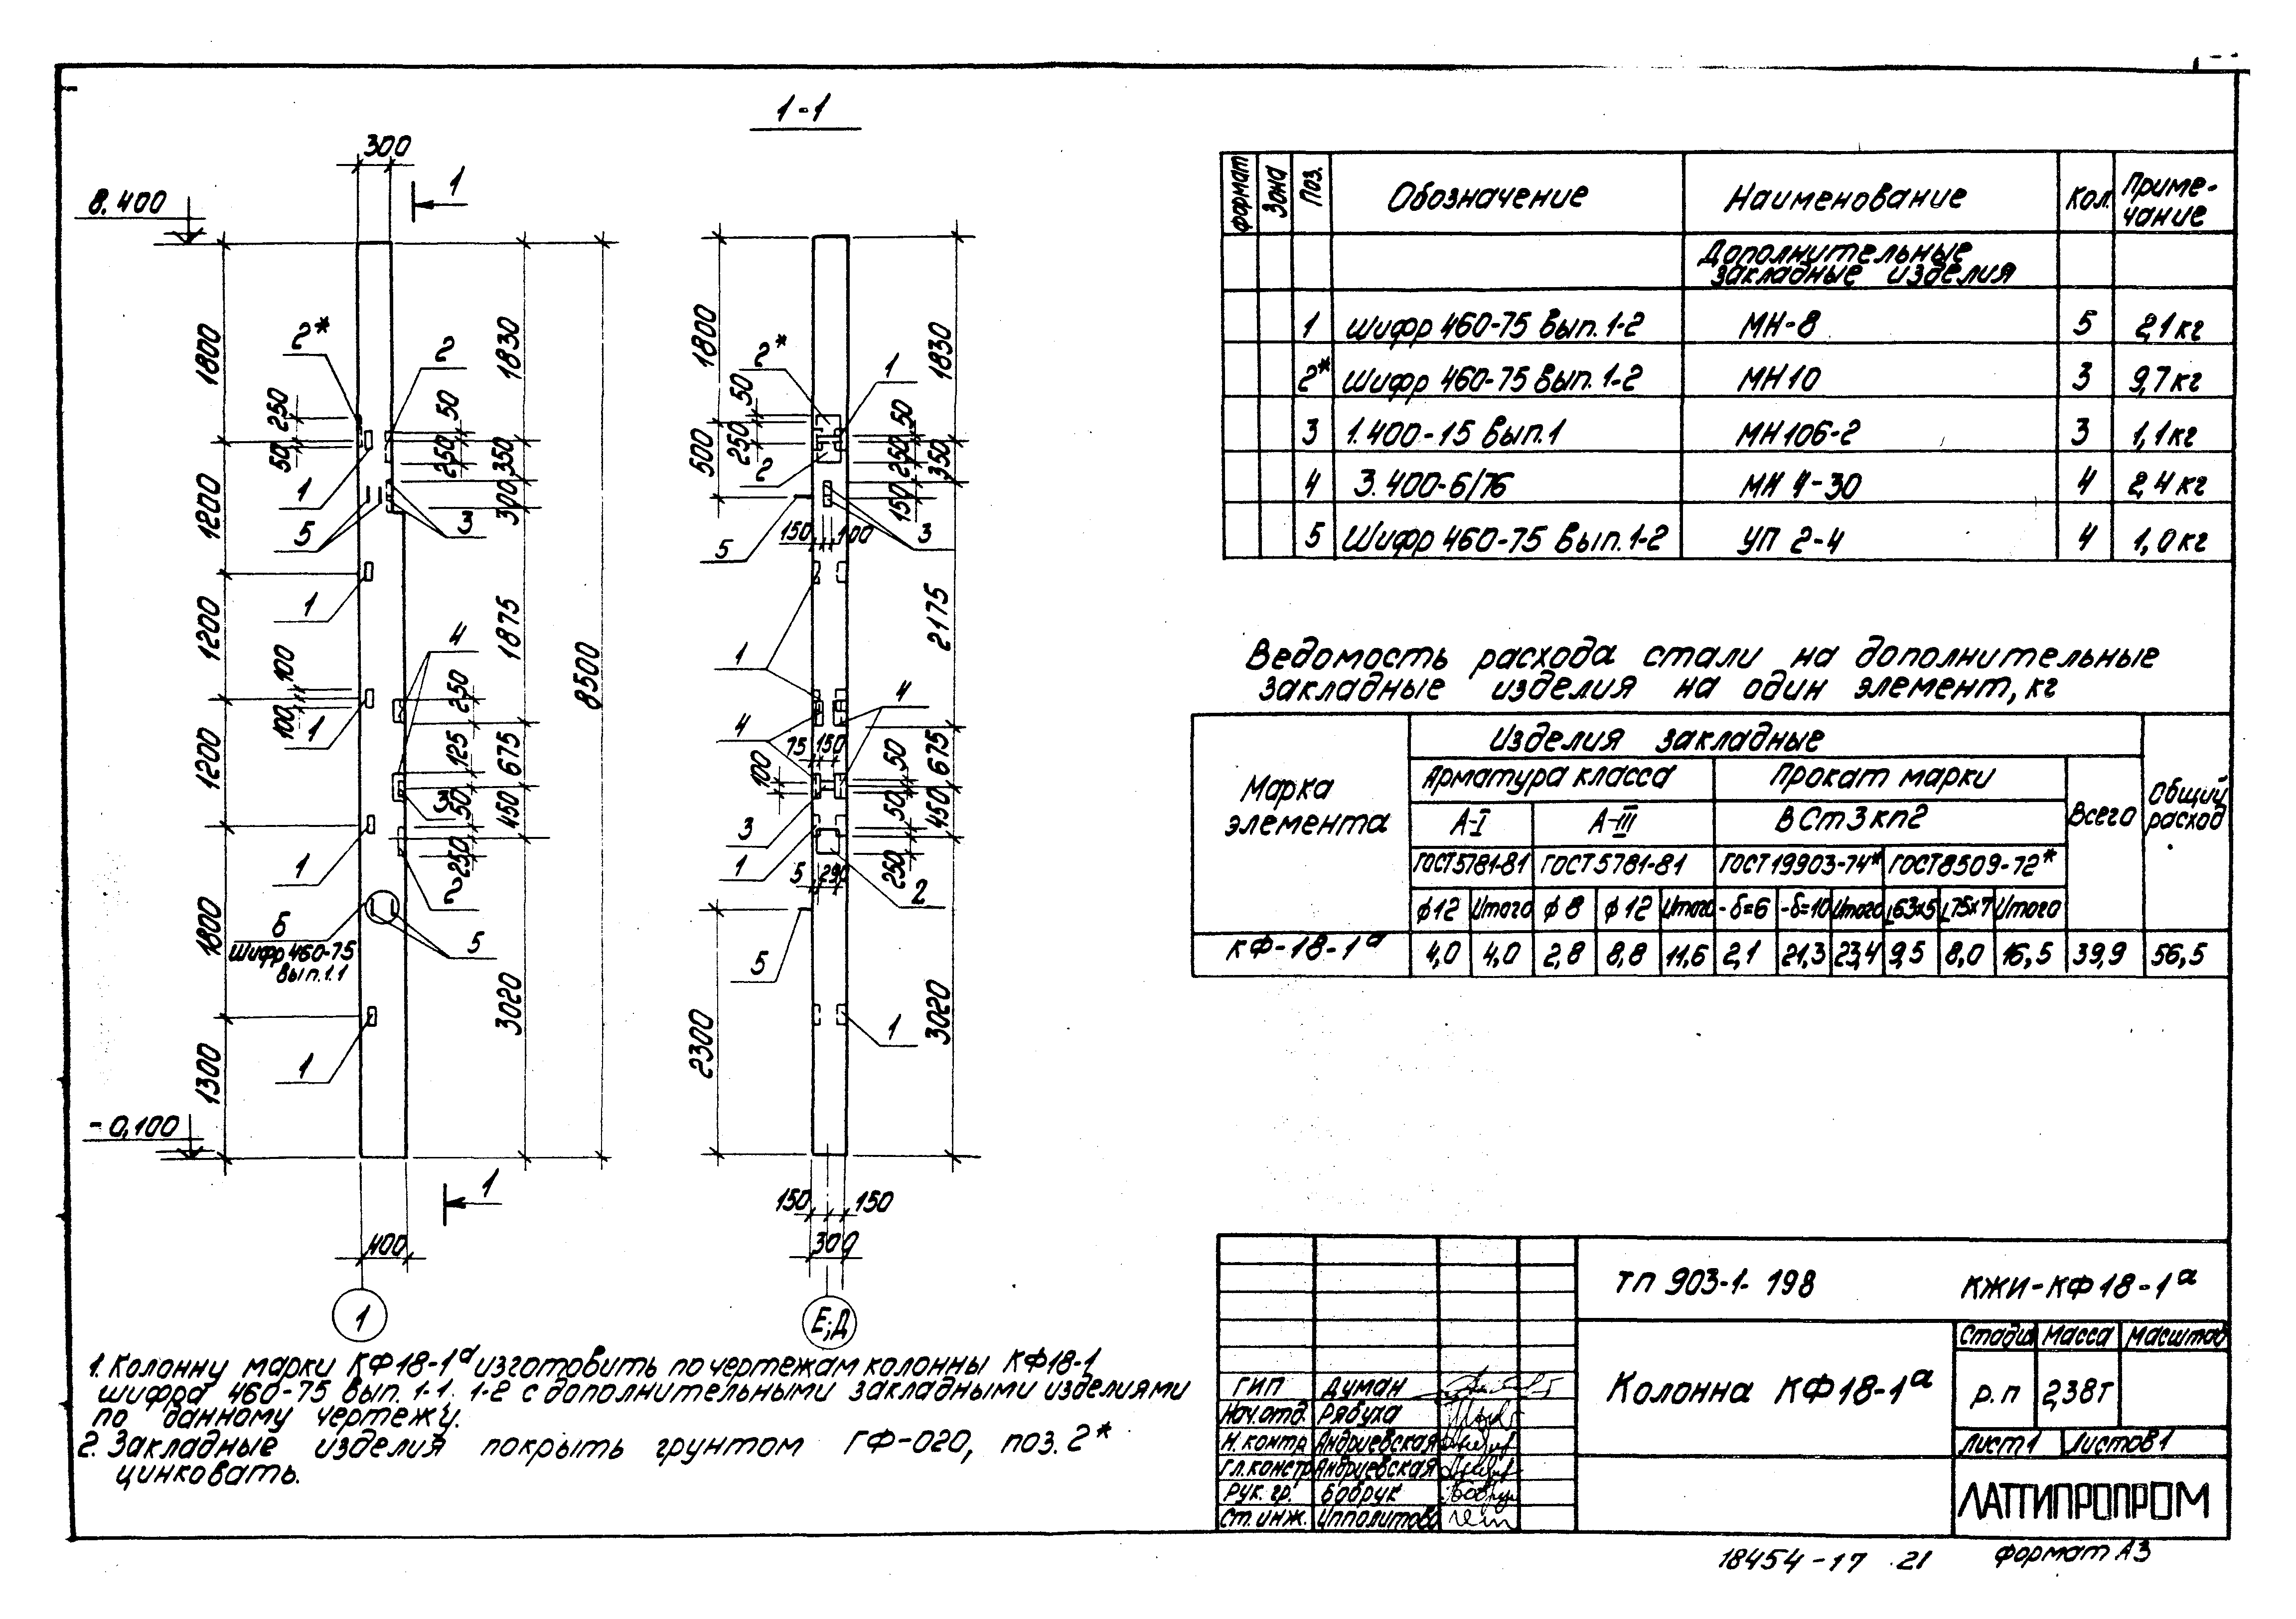 1-1
300
1
8.400
1800
1200
1200
1200
1800
1300
2*
250
50
1
5
1
100
100
1
1
6
Шифр 460-75
вып.1.1
1
-0,100
2
50
250
3
4
250
125
3
50
250
2
5
1830
350
300
1875
675
450
3020
8500
1
400
1
1800
500
2*
50
250
2
1
50
250
150
3
150
100
5
1
4
4
75
150
100
50
50
3
1
5
290
250
2
5
1
2300
1830
350
2175
675
450
3020
150
150
300
Е;Д
1. Колонну марки КФ18-1а изготовить по чертежам колонны КФ18-1
шифра 460-75 вып. 1-1. 1-2 с дополнительными закладными изделиями
по данному чертежу.
2. Закладные изделия покрыть грунтом ГФ-020, поз. 2*
цинковать.
Формат Зона Поз. Обозначение Наименование Кол. Приме-
чание
Дополнительные
закладные изделия
1 Шифр 460-75 вып. 1-2 МН-8 5 2,1кг
2* Шифр 460-75 вып. 1-2 МН10 3 9,7кг
3 1.400-15 вып.1 МН106-2 3 1,1кг
4 3.400-6/76 МН 4-30 4 2,4кг
5 Шифр 460-75 вып.1-2 УП 2-4 4 1,0кг
Ведомость расхода стали на дополнительные
закладные изделия на один элемент, кг
Марка
элемента
Изделия закладные
Арматура класса Прокат марки
А-I А-III ВСт3кп2 Всего Общий
расход
ГОСТ5781-81 ГОСТ5781-81 ГОСТ19903-74* ГОСТ8509-72*
ф12 Итого ф8 ф12 Итого -δ=6 -δ=10 Итого L63x5 L75x7 Итого
КФ-18-1а 4,0 4,0 2,8 8,8 11,6 2,1 21,3 23,4 9,5 8,0 16,5 39,9 56,5
ТП 903-1-198 КЖИ-КФ18-1а
Колонна КФ18-1а
Стадия Масса Масштаб
р.п 2,38т
Лист1 Листов1
ЛАТГИПРОПРОМ
ГИП Думан
Нач.отд. Рябуха
Н.контр Андриевская
Гл.констр Андриевская
Рук. гр. Бобрук
Ст.инж. Ипполитова
18454-17 21
Формат А3